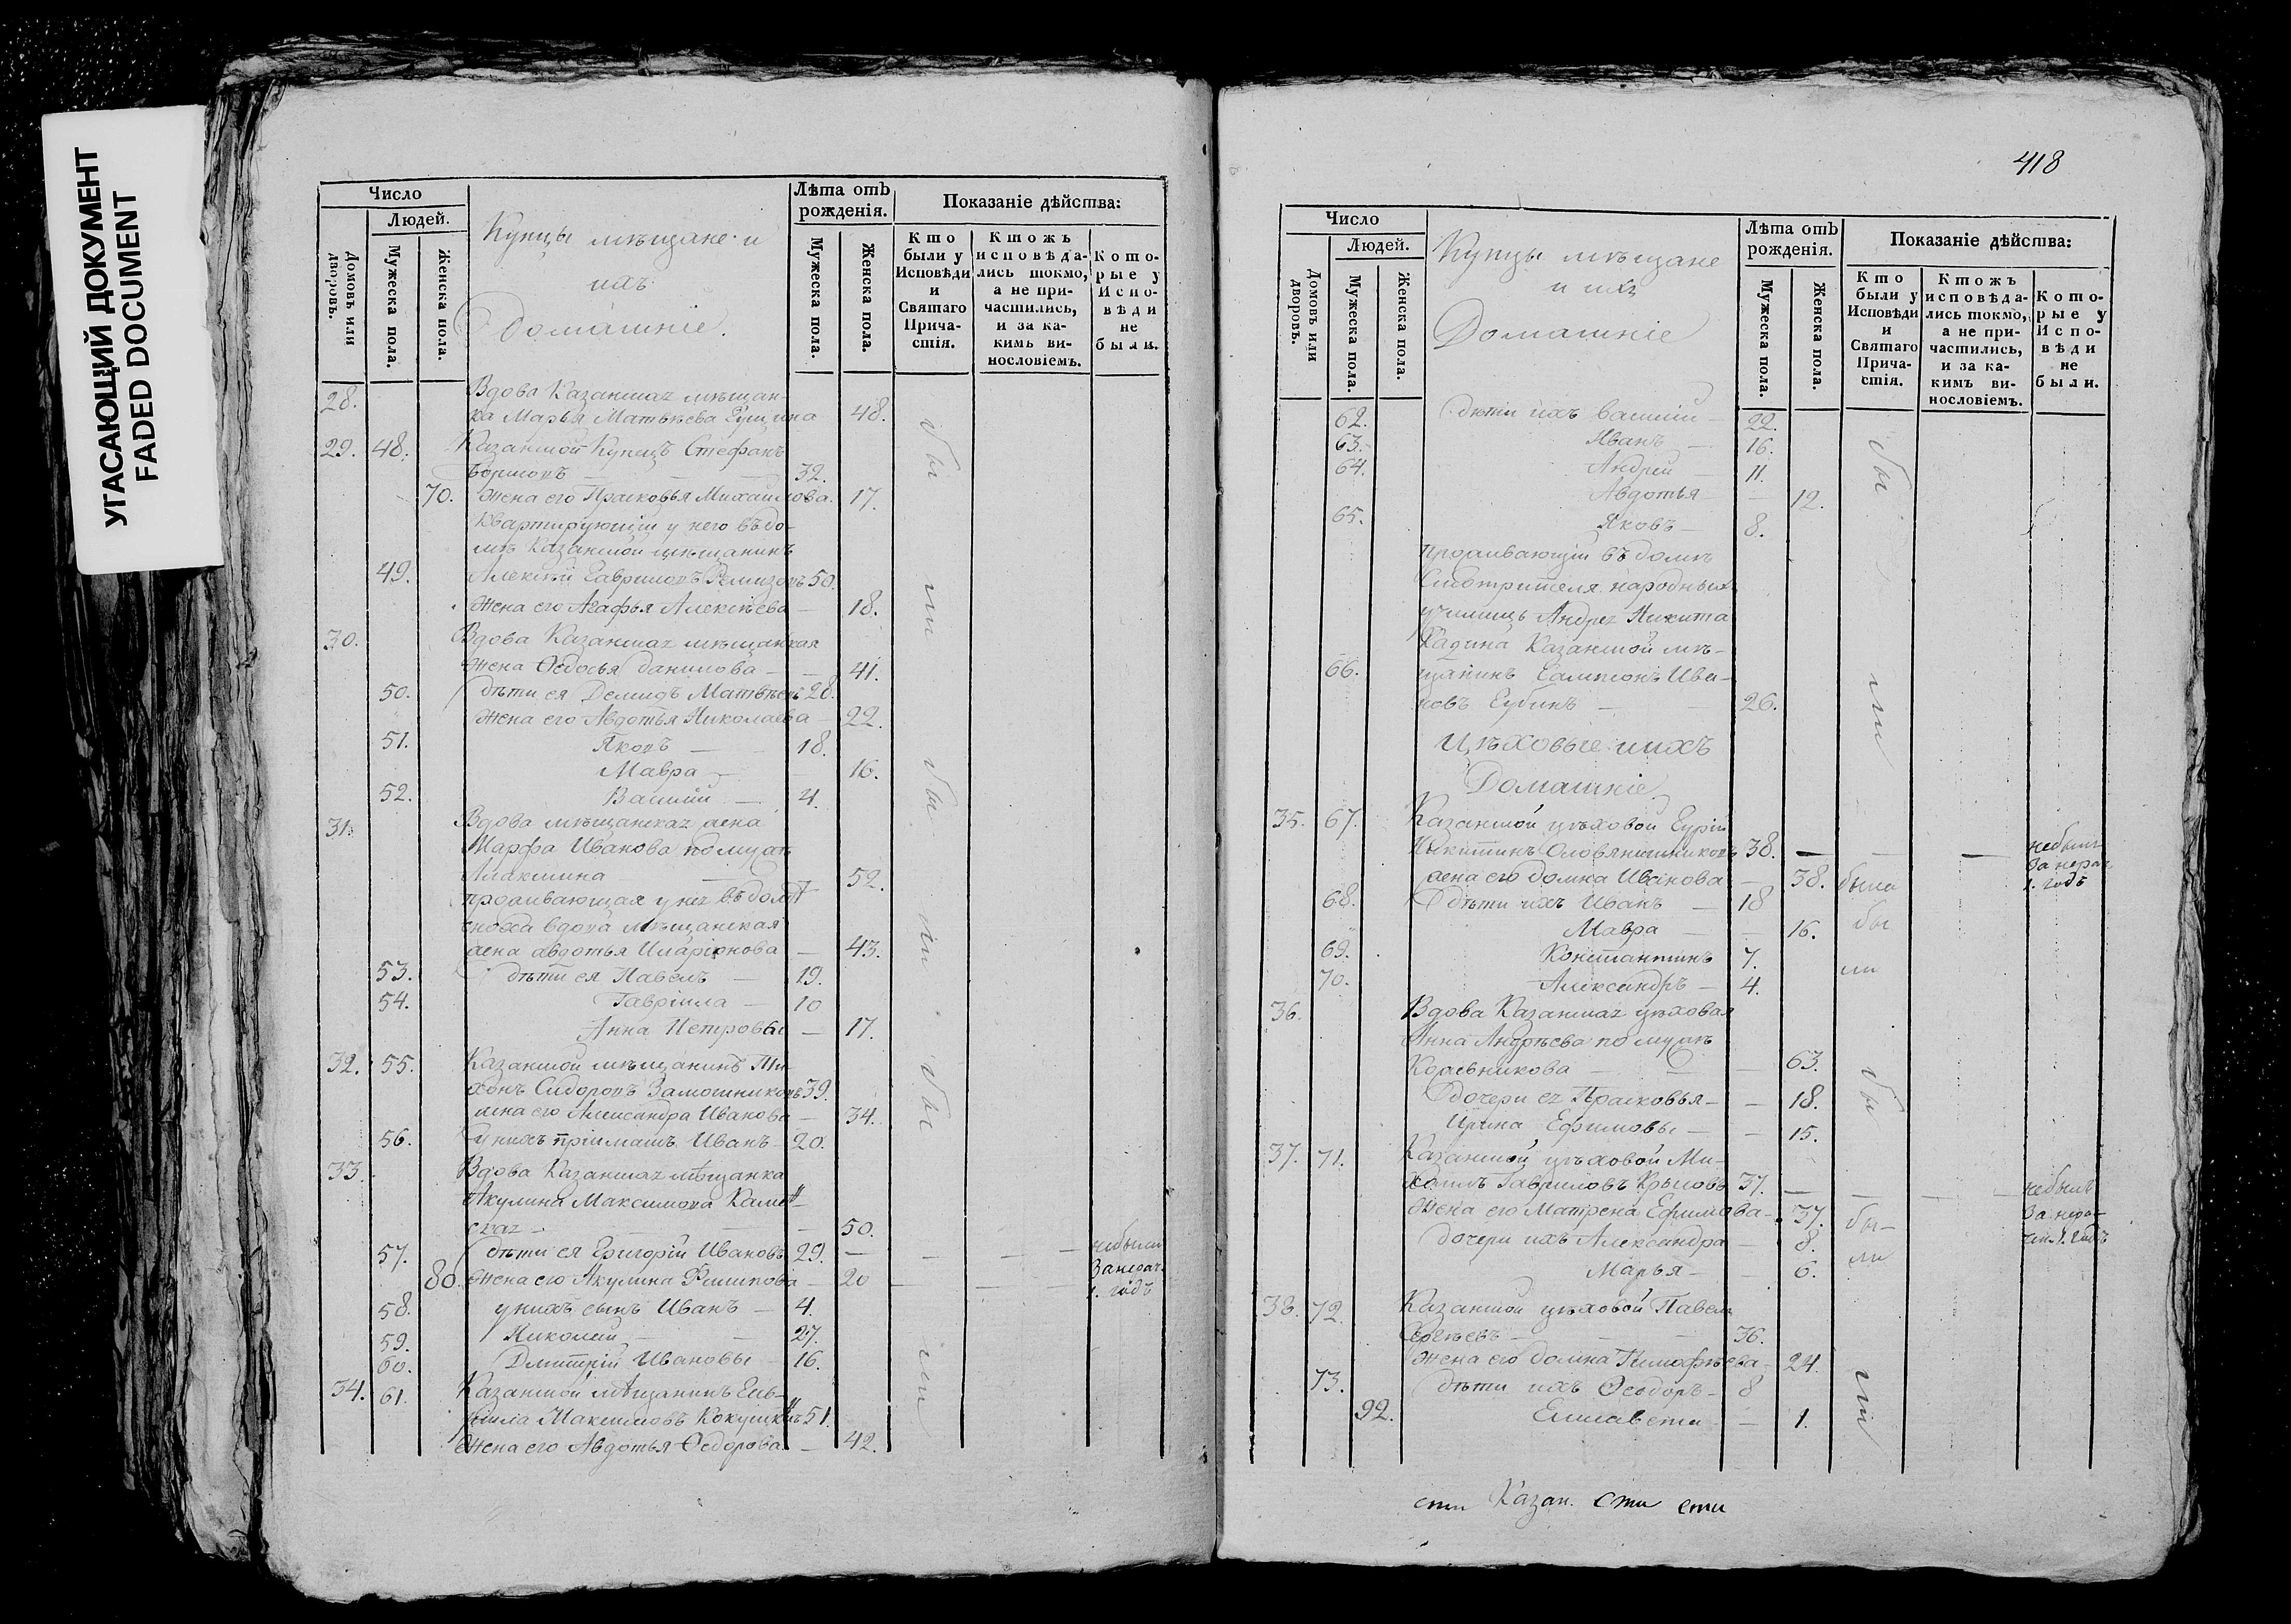 УГАСАЮЩИЙ ДОКУМЕНТ
FADED DOCUMENT
Число
Людей.
Домовъ или дворовъ.
Мужеска пола.
Женска пола.
Купцы мѣщане и
ихъ
Домашніе.
Лѣта отъ рожденія.
Мужеска пола.
Женска пола.
Показаніе дѣйства:
Кто были у Исповѣди и Святаго Причастія.
Ктожъ исповѣдались токмо, а не причастились, и за какимъ винословіемъ.
Которые у Исповѣди не были.
28. Вдова Казанская мѣщан-
ка Марья Матвѣева 48.
29. 48. Казанской Купецъ Стефанъ
32.
70. Жена его Прасковья Михаилова. 17.
Квартирующій у него въ до-
мѣ Казанской мѣщанинъ
49. Алексѣй Гавриловъ Ремизовъ 50.
Жена его Агафья Алексѣева — 18.
30. Вдова Казанская мѣщанская
жена Ѳедосья Данилова — 41.
50. дѣти ея Демидъ Матвѣевъ 28.
Жена его Авдотья Николаева — 22.
51. Яковъ — 18.
Мавра — 16.
52. Василій — 4.
31. Вдова мѣщанская жена
Марфа Иванова по мужѣ
52.
проживающая у нея въ домѣ
сноха вдова мѣщанская
жена Авдотья Иларіонова — 43.
53. дѣти ея Павелъ — 19.
54. Гавріила — 10
Анна Петровы — 17.
32. 55. Казанской мѣщанинъ Ти-
хонъ Сидоровъ Замошниковъ 39.
жена его Александра Иванова — 34.
56. у нихъ пріимашъ Иванъ — 20.
33. Вдова Казанская мѣщанка
Акулина Максимова Камен-
ская — 50.
57. дѣти ея Григорій Ивановъ 29. — небыли
80. Жена его Акулина Филипова — 20 — за нерач.
1. годъ
58. у нихъ сынъ Иванъ — 4.
59. Николай — 27.
60. Дмитрій Ивановы 16.
34. 61. Казанской мѣщанинъ Гав-
рiила Максимовъ Кокушкинъ 51.
Жена его Авдотья Ѳедорова — 42.
бы
ли
бы
ли
бы
ли
418
Число
Людей.
Домовъ или дворовъ.
Мужеска пола.
Женска пола.
Купцы мѣщане
и ихъ
Домашніе
Лѣта отъ рожденія.
Мужеска пола.
Женска пола.
Показаніе дѣйства:
Кто были у Исповѣди и Святаго Причастія.
Ктожъ исповѣдались токмо, а не причастились, и за какимъ винословіемъ.
Которые у Исповѣди не были.
62. дѣти ихъ Василій — 22.
63. Иванъ — 16.
64. Андрей — 11.
Авдотья — 12.
65. Яковъ — 8.
проживающій въ домѣ
Смотрителя народныхъ
училищъ Андрея Никита
Казанской мѣ-
66. щанинъ Сампсонъ Ива-
новъ Губинъ — 26.
Цѣховые и ихъ
Домашніе
35. 67. Казанской цѣховой Гурій
Никитинъ Оловянишниковъ 38. — небылъ
за нерач.
1. годъ
жена его Домна Иванова — 38. была
68. дѣти ихъ Иванъ — 18
Мавра — 16. бы
69. Константинъ 7.
ли
70. Александръ — 4.
36. Вдова Казанская цѣховая
Анна Андрѣева по мужѣ
Кожевникова — 63.
дочери ея Прасковья — 18.
Ирина Ефимовы — 15.
37. 71. Казанской цѣховой Ми-
хаилъ Гавриловъ Крыловъ 37. — небылъ
Жена его Матрена Ефимова — 37. бы- за нера-
дочери ихъ Александра — 8. чен. 1. годъ
ли
Марья — 6.
38. 72. Казанской цѣховой Павелъ
Сергѣевъ — 36.
Жена его Домна Тимофѣева — 24.
73. дѣти ихъ Ѳеодоръ — 8
92. Елисавета — 1.
бы
ли
бы
ли
сти Казан. сти сти